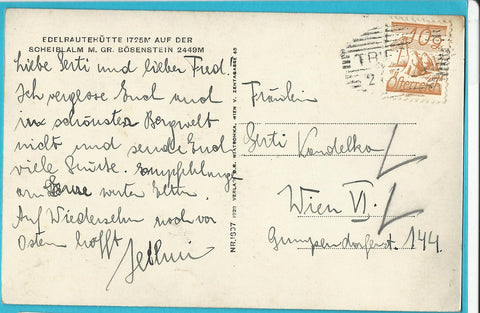 EDELRAUTEHÜTTE 1725M AUF DER
SCHEIBLALM M. GR. BÖSENSTEIN 2449M
Liebe Gerti und lieber Fred.
Ich vergesse Euch auch
in schönster Bergwelt
nicht und sende Euch
viele Grüße. Empfehlung
an werten Eltern.
Auf Wiedersehn noch vor
Ostern hofft
NR. 1607 1931 VERLAG WIEN V. ZENTAGASSE
10 G
Österreich
Fräulein
Gerti
Wien VI.
Gumpendorferst. 144.